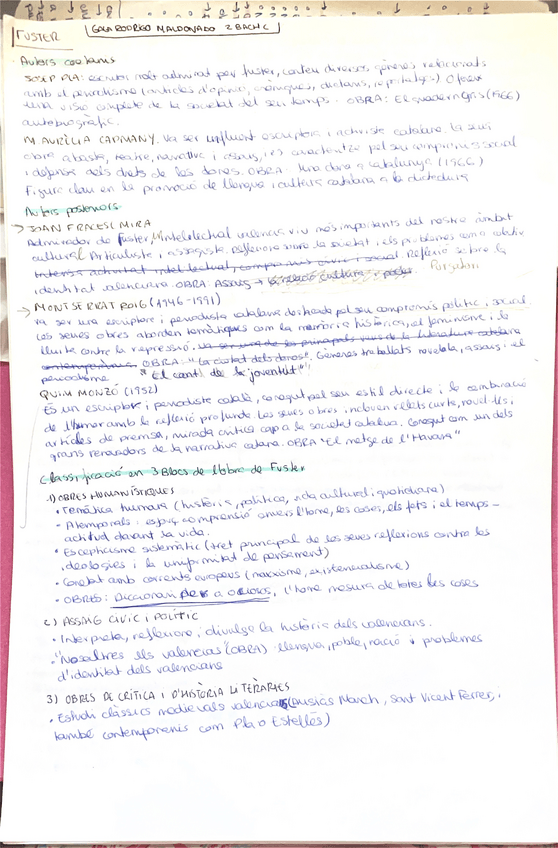 FUSTER
GALA RODRIGO MALDONADO 2 BACH C
Autors catalans
JOSEP PLA: escriptor molt admirat per fuster, conreu diversos gèneres relacionats
amb el periodisme (articles d'opinió, cròniques, dietaris, reportatge-) Oferex
una visió completa de la societat del seu temps. OBRA: El quadern gris (1966)
autobiogràfic.
M. AURÈLIA CAPMANY. Va ser influent escriptora i activista catalana. La seua
obra abasta, teatre, narrativa i assaig, i es caracteritza pel seu compromís social
i defensa dels drets de les dones. OBRA: Una dona a Catalunya (1966)
Figura clau en la promoció de llengua i cultura catalana a la dictadura
Autors posteriors
JOAN FRACESC MIRA
Admirador de fuster, intelectual valencià viu més importants del nostre àmbit
cultural. Articuliste, assagiste. Reflexiona sobre la societat i els problemes com a relatiu
intensa activitat intel·lectual, compromís cívic i social. Reflexió sobre la
identitat valenciana. OBRA: ASSAIG →
MONTSERRAT ROIG (1946-1991)
va ser una escriptora i periodista catalana destacada pel seu compromís polític i social
Les seues obres aborden temàtiques com la memòria històrica, el feminisme i la
lluita contra la repressió. Va ser una de les principals veus de la literatura catalana
contemporània. OBRA: "La ciutat dels dones". Gèneres treballats novel·la, assaig i el
periodisme * El cant de la joventut"
QUIM MONZÓ (1952)
És un escriptor i periodiste català, conegut pel seu estil directe i la combinació
de l'humor amb la reflexió profunda. Les seues obres inclouen relats curts, novel·les,
articles de premsa, mirada crítica cap a la societat catalana. Conegut com un dels
grans renovadors de la narrativa catalana. OBRA "El metge de l'Havana"
Classificació en 3 Blocs de l'obra de Fuster
1) OBRES HUMANÍSTIQUES
· Temàtica humana (història, política, vida cultural i quotidiana)
· Atemporals: esforç comprensió envers l'home, les coses, els fets i el temps -
actitud davant la vida.
· Escepticisme sistemàtic (tret principal de les seves reflexions contra les
ideologies i la uniformitat de pensament)
· Conectat amb corrents europeus (marxisme, existencialisme)
· OBRES: Diccionari per a ociosos, L'home mesura de totes les coses
2) ASSAIG CÍVIC I POLÍTIC
· Interpreta, reflexiona i divulga la història dels valencians.
· "Nosaltres els valencians" (OBRA) - llengua, poble, nació i problemes
d'identitat dels valencians
3) OBRES DE CRÍTICA I D'HISTÒRIA LITERÀRIES
· Estudi clàssics medievals valencians (Ausiàs March, Sant Vicent Ferrer, i
també contemporanis com Pla o Estellés)